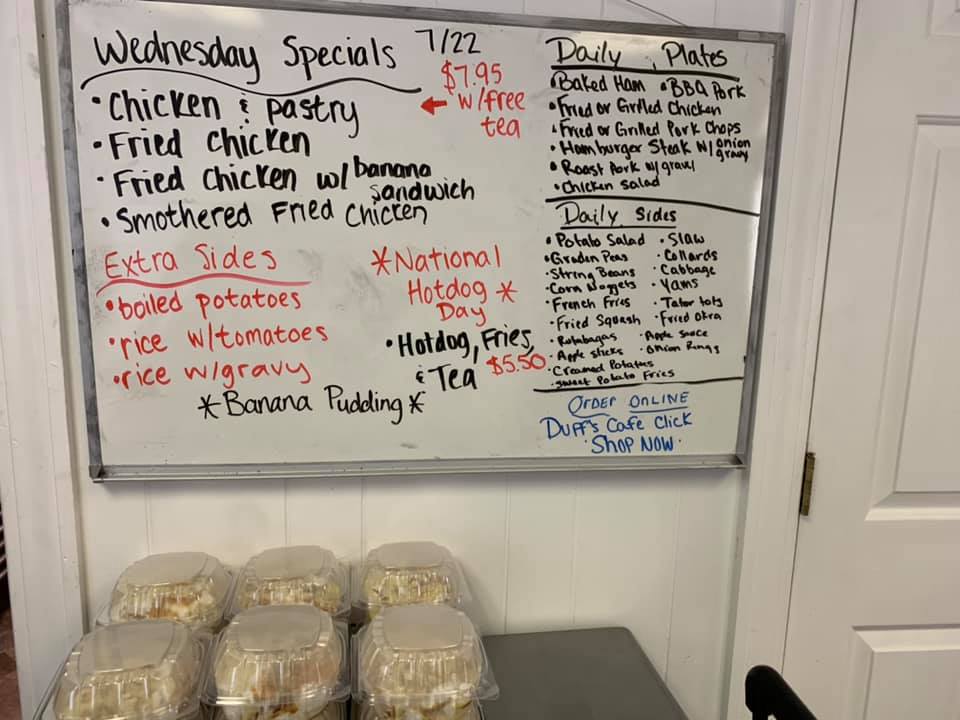 Wednesday Specials 7/22
$7.95
w/free
tea
• Chicken & pastry
• Fried Chicken
• Fried Chicken w/ banana
sandwich
• Smothered Fried Chicken
Extra Sides
• boiled potatoes
• rice w/tomatoes
• rice w/gravy
*National
Hotdog *
Day
• Hotdog, Fries,
& Tea $5.50
*Banana Pudding*
Daily Plates
• Baked Ham • BBQ Pork
• Fried or Grilled Chicken
• Fried or Grilled Pork Chops
• Hamburger Steak w/ onion
gravy
• Roast Pork w/gravy
• Chicken Salad
Daily Sides
• Potato Salad • Slaw
• Graden Peas • Collards
• String Beans • Cabbage
• Corn Nuggets • Yams
• French Fries • Tator tots
• Fried Squash • Fried Okra
• Rutabagas • Apple Sauce
• Apple sticks • Onion Rings
• Creamed Potatoes
• Sweet Potato Fries
ORDER ONLINE
DUFF'S Cafe Click
• SHOP NOW •